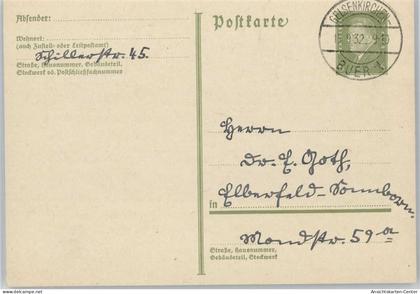 Absender:
Postkarte
GELSENKIRCHEN
BUER 1
Wohnort:
(auch Zustell- oder Leitpostamt)
Schillerstr. 45.
Straße, Hausnummer, Gebäudeteil,
Stockwerk od. Postschließfachnummer
Herrn
Dr. E. Goth,
Elberfeld-Sonnborn.
in
Mondstr. 59a
Straße, Hausnummer,
Gebäudeteil, Stockwerk
Ansichtskarten-Center